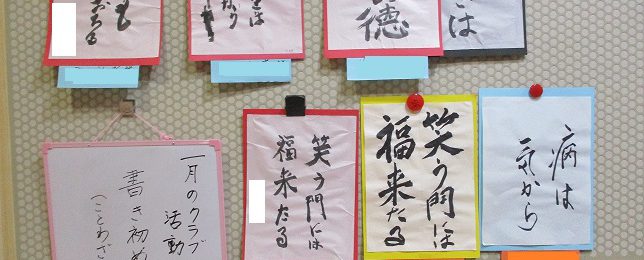 も
おちる
は
なり
徳
は
一月のクラブ
活動
書き初め
(ことわざ
笑う門には
福来たる
笑う門には
福来たる
病は
気から